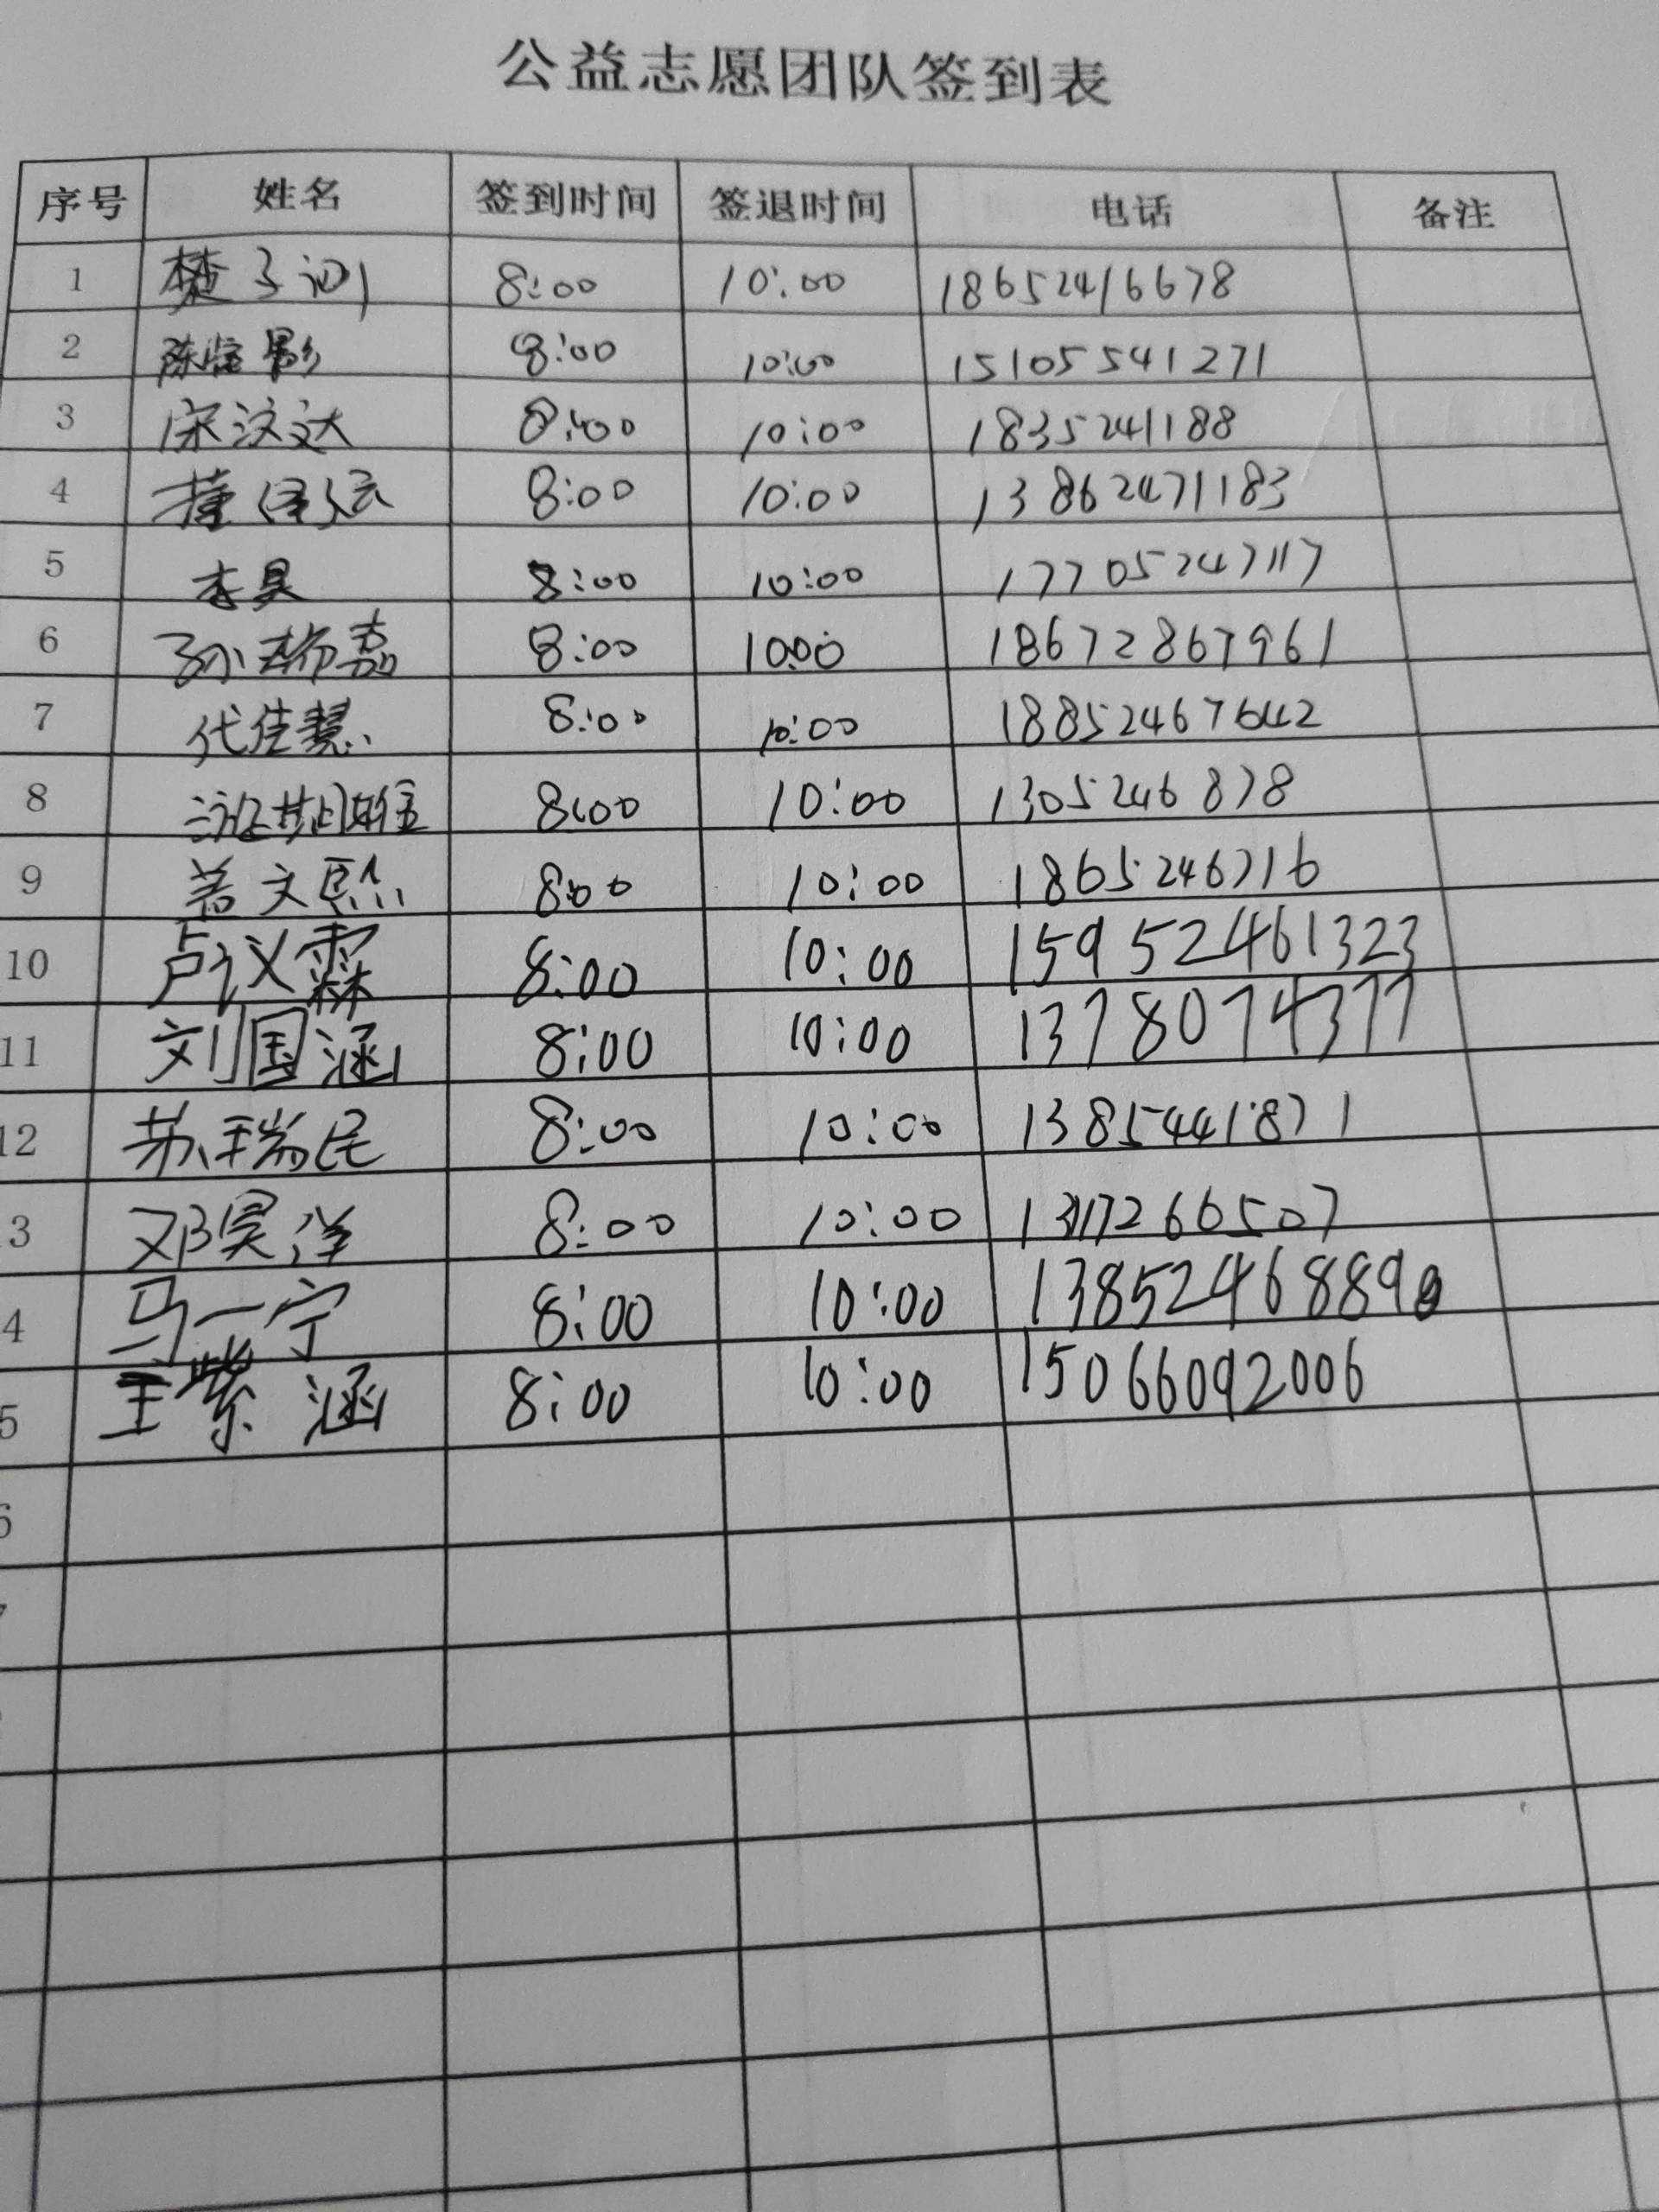 公益志愿团队签到表
序号 姓名 签到时间 签退时间 电话 备注
1 楚子 8:00 10:00 18652416678
2 陈 影 8:00 10:00 15105541271
3 宋汶达 8:00 10:00 1835241188
4 8:00 10:00 13862471183
5 李昊 8:00 10:00 17705247117
6 孙瑞嘉 8:00 10:00 18672867961
7 代佳慧 8:00 10:00 18852467642
8 8:00 10:00 1305246878
9 文熙 8:00 10:00 1865246716
10 卢议霖 8:00 10:00 15952461323
11 刘国涵 8:00 10:00 13780774377
12 苏瑞民 8:00 10:00 1385441871
3 邓昊洋 8:00 10:00
4 马一宁 8:00 10:00 1385246889
5 王紫涵 8:00 10:00 15066092006
6
7